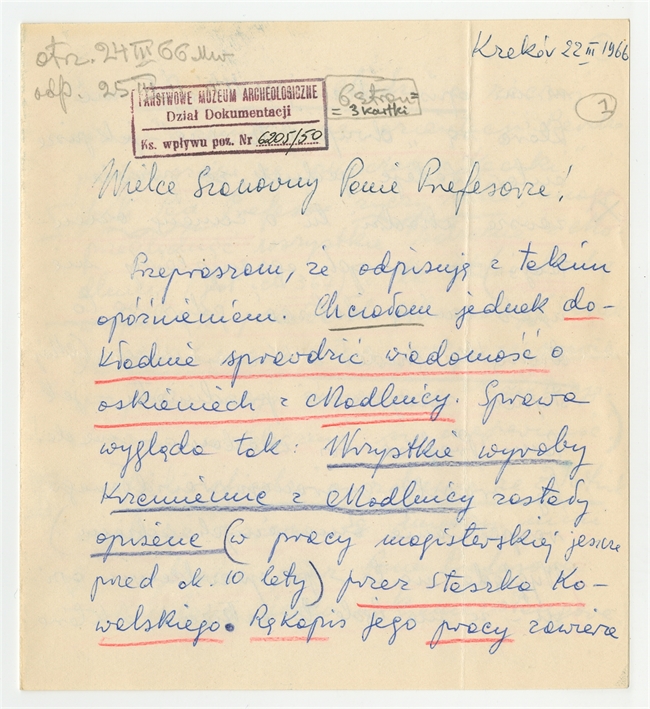 otrz. 24 III 66 Mw
odp. 25 III
Kraków 22 III 1966
PAŃSTWOWE MUZEUM ARCHEOLOGICZNE
Dział Dokumentacji
Ks. wpływu poz. Nr 6205/50
6 stron =
= 3 kartki
1
Wielce Szanowny Panie Profesorze!
Przepraszam, że odpisuję z takim
opóźnieniem. Chciałam jednak do-
kładnie sprawdzić wiadomość o
oskianiech z Modlnicy. Sprawa
wygląda tak: Wszystkie wyroby
krzemienne z Modlnicy zostały
opisane (w pracy magisterskiej jeszcze
przed ok. 10 laty) przez Staszka Ko-
walskiego. Rękopis jego pracy zawiera